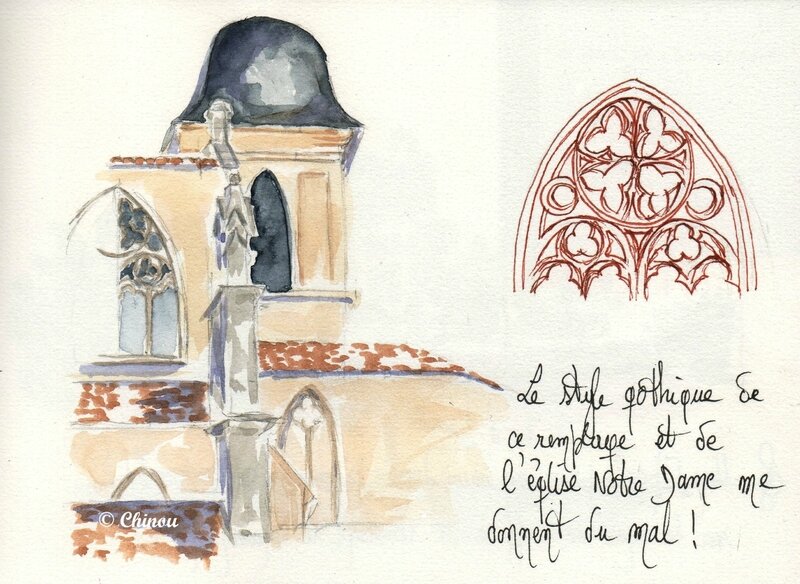 Le style gothique de
ce remplage et de
l'église Notre Dame me
donnent du mal !
© Chinou